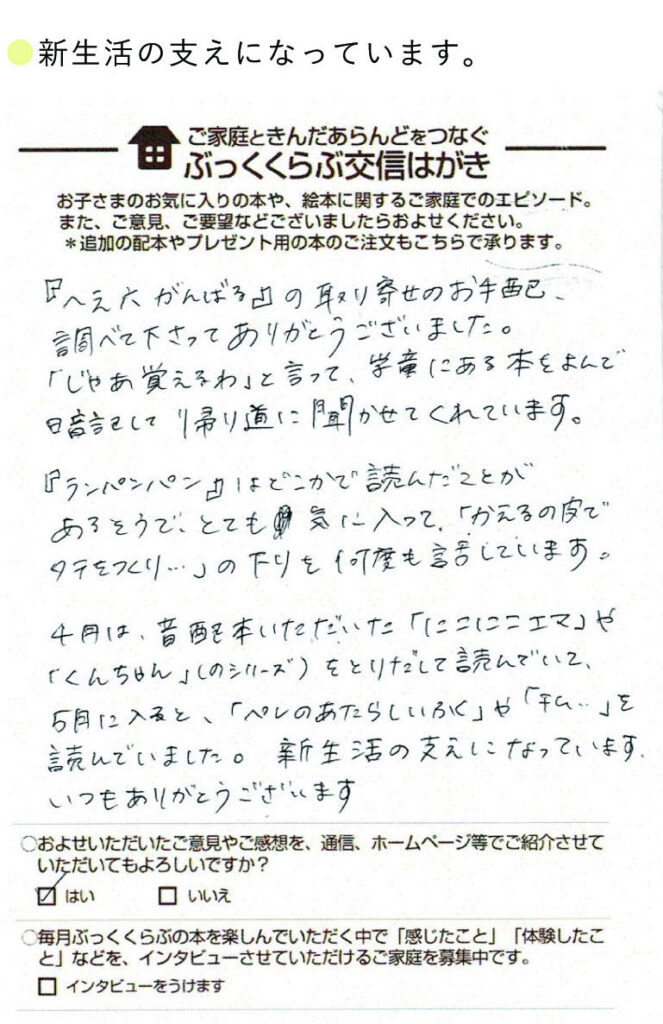 新生活の支えになっています。
ご家庭ときんだあらんどをつなぐ
ぶっくくらぶ交信はがき
お子さまのお気に入りの本や、絵本に関するご家庭でのエピソード。
また、ご意見、ご要望などございましたらおよせください。
*追加の配本やプレゼント用の本のご注文もこちらで承ります。
『へえ六がんばる』の取り寄せのお手配、
調べて下さってありがとうございました。
「じゃあ覚えるわ」と言って、学童にある本をよんで
暗記して帰り道に聞かせてくれています。
『ランパンパン』はどこかで読んだことが
あるそうで、とても気に入って、「かえるの皮で
タテをつくり…」の下りを何度も話しています。
4月は、昔配本いただいた「にこにこエマ」や
「くんちゃん」(のシリーズ)をとりだして読んでいて、
5月に入ると、「ペレのあたらしいふく」や「…」を
読んでいました。新生活の支えになっています、
いつもありがとうございます
○およせいただいたご意見やご感想を、通信、ホームページ等でご紹介させて
いただいてもよろしいですか?
☑ はい □ いいえ
○毎月ぶっくくらぶの本を楽しんでいただく中で「感じたこと」「体験したこ
と」などを、インタビューさせていただけるご家庭を募集中です。
□ インタビューをうけます